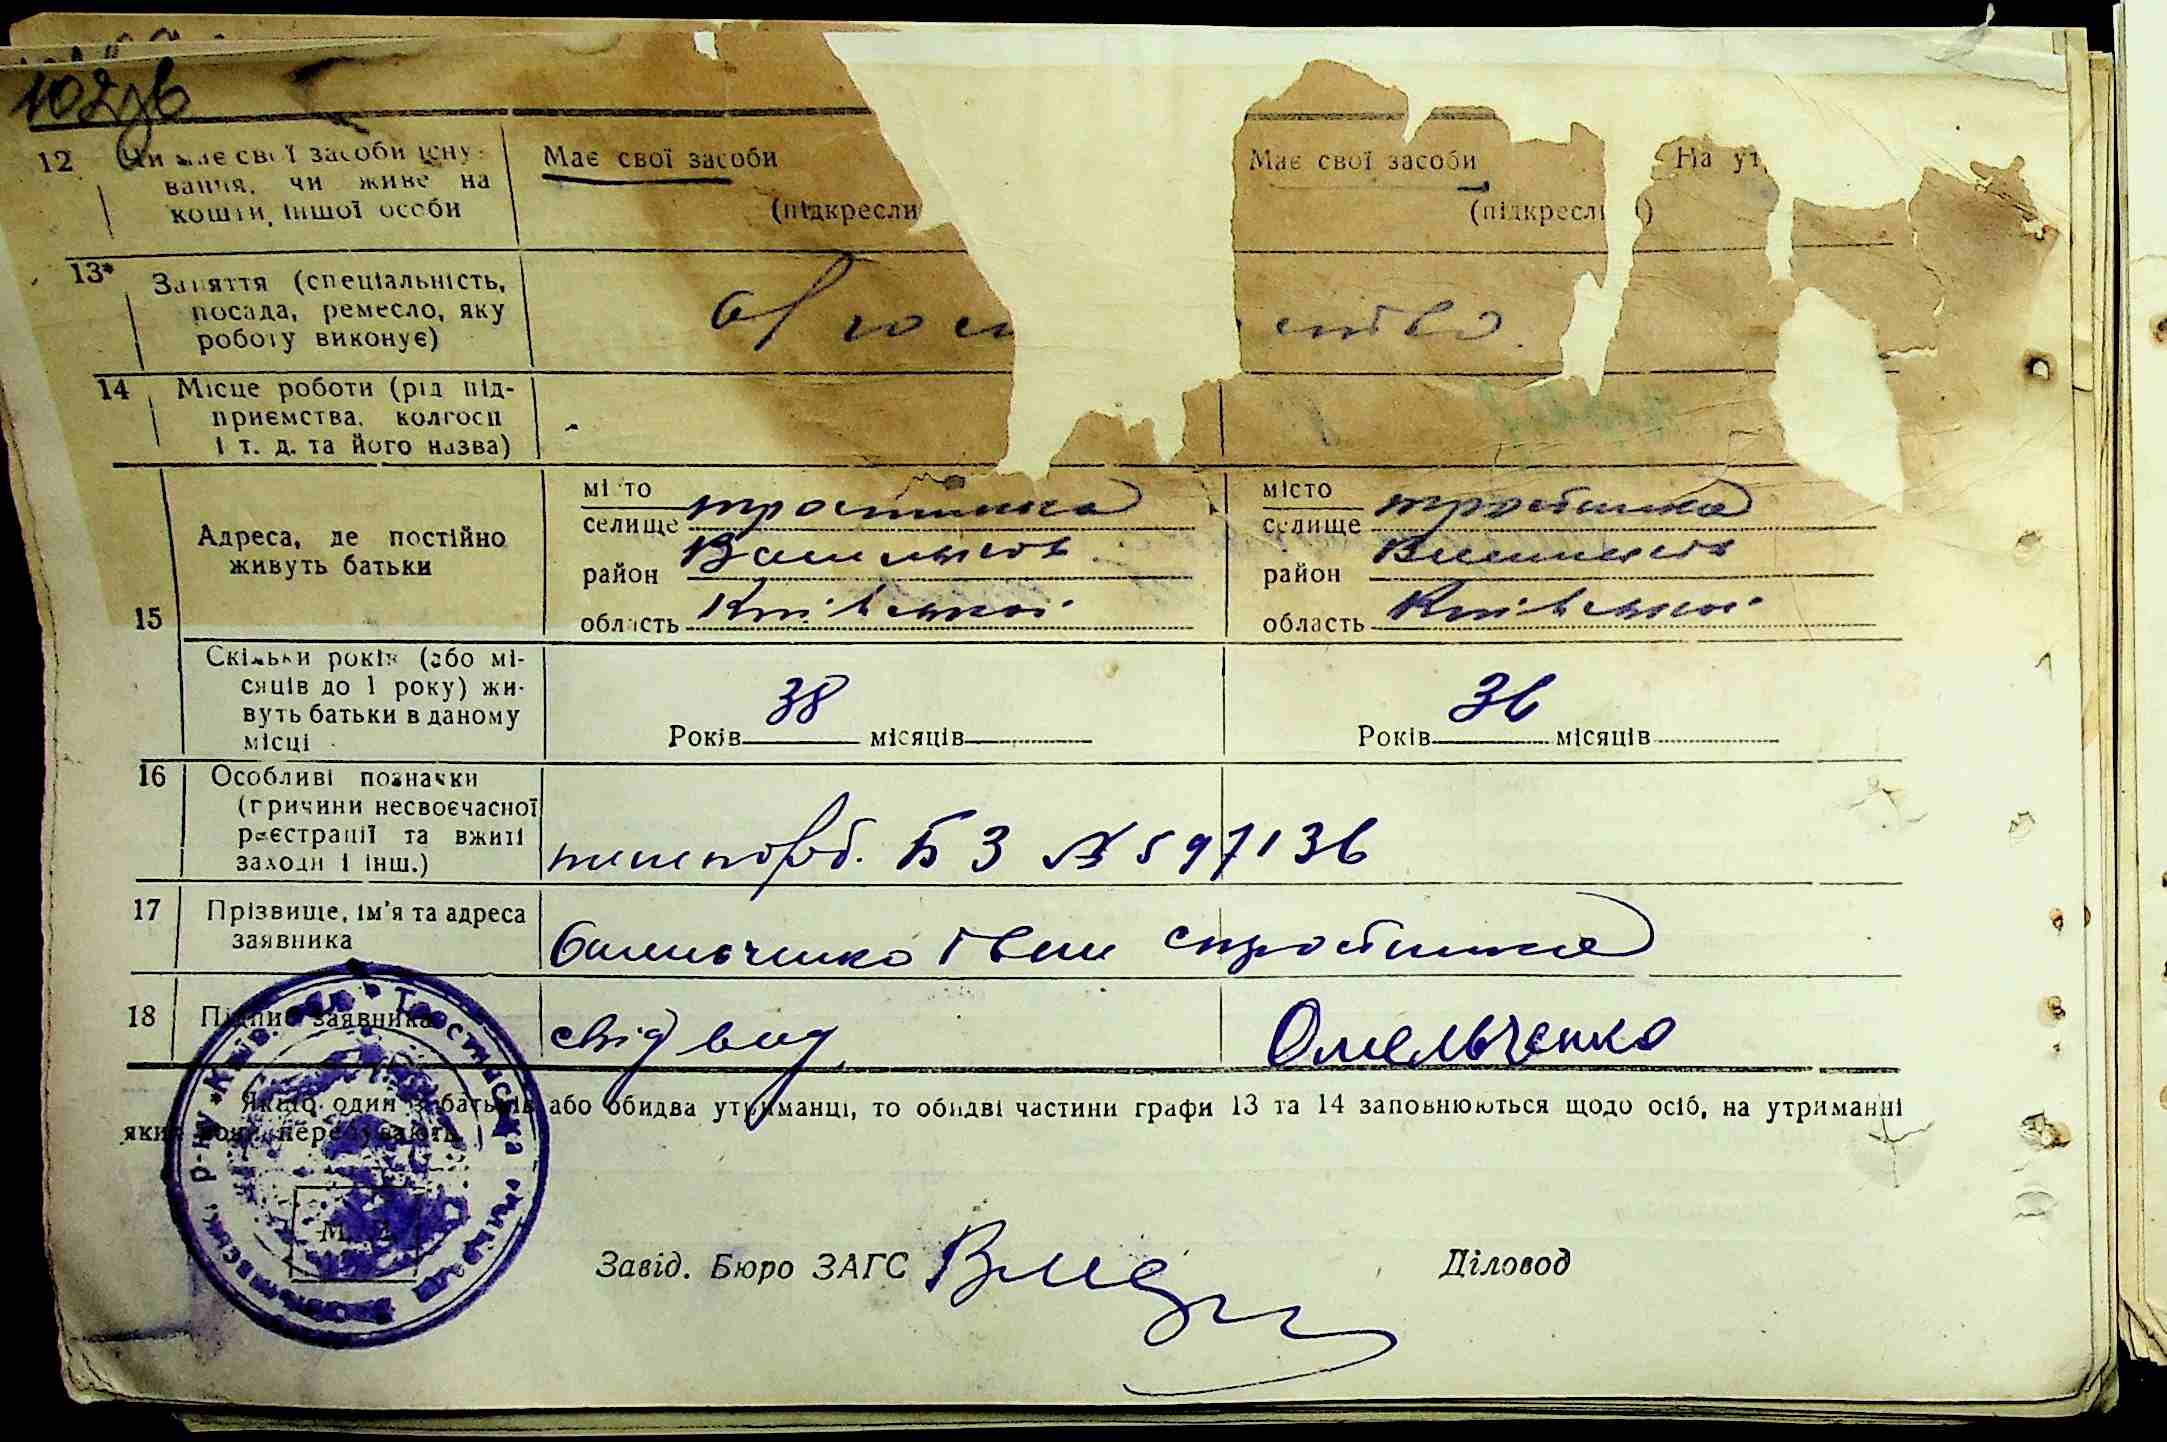 102зв
12 Чи має свої засоби існу-
вання, чи живе на
кошти іншої особи
Має свої засоби
(підкресли
Має свої засоби На ут
(підкресл )
13* Заняття (спеціальність,
посада, ремесло, яку
роботу виконує)
14 Місце роботи (рід під-
приємства, колгосп
і т. д. та його назва)
15
Адреса, де постійно
живуть батьки
місто
селище тростинка
район Васильков
область Київської
місто
селище тростинка
район
область Київської
Скільки років (або мі-
сяців до 1 року) жи-
вуть батьки в даному
місці
Років 38 місяців
Років 36 місяців
16 Особливі позначки
(причини несвоєчасної
реєстрації та вжиті
заходи і інш.)
БЗ № 597136
17 Прізвище, ім'я та адреса
заявника
Омельченко Іван
18 Підпис заявника
свід вид Омельченко
Якщо один з батьків або обидва утриманці, то обидві частини графи 13 та 14 заповнюються щодо осіб, на утриманні
яких вони перебувають
М.
Завід. Бюро ЗАГС Діловод